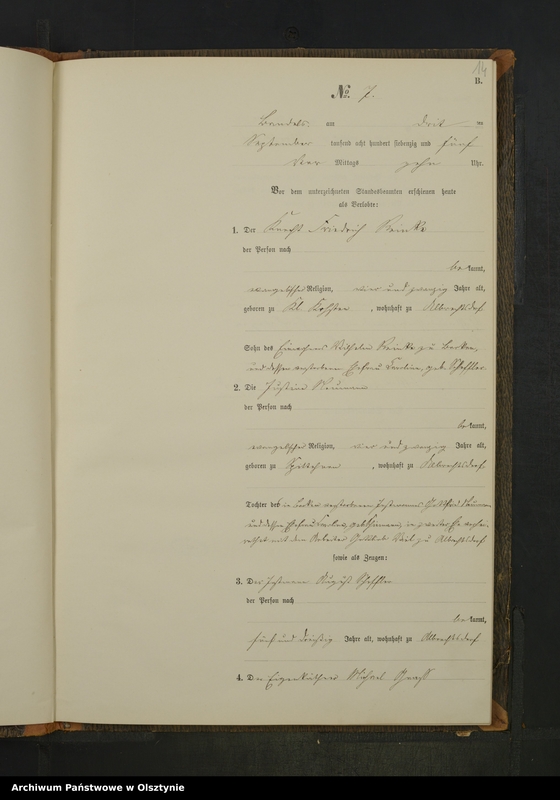 14
B.
№ 7.
am drit en
September tausend acht hundert siebenzig und fünf
Vor Mittags zehn Uhr.
Vor dem unterzeichneten Standesbeamten erschienen heute
als Verlobte:
1. Der Knecht Friedrich Reinke
der Person nach
be kannt,
evangelischer Religion, vier und zwanzig Jahre alt,
geboren zu Kl. , wohnhaft zu Albrechtsdorf
Sohn des Einwohners Wilhelm Reinke zu
und dessen verstorbenen Ehefrau Caroline, geb. Scheffler
2. Die Justine Neumann
der Person nach
be kannt,
evangelischer Religion, vier und zwanzig Jahre alt,
geboren zu , wohnhaft zu Albrechtsdorf
Tochter des in verstorbenen Instmanns Gottfried Neumann
und dessen Ehefrau in zweiter Ehe verhei-
rathet mit dem Arbeiter Gottlieb zu Albrechtsdorf
sowie als Zeugen:
3. Der Instmann August Scheffler
der Person nach
be kannt,
fünf und dreißig Jahre alt, wohnhaft zu Albrechtsdorf
4. Der Eigenkäthner Michael
Archiwum Państwowe w Olsztynie